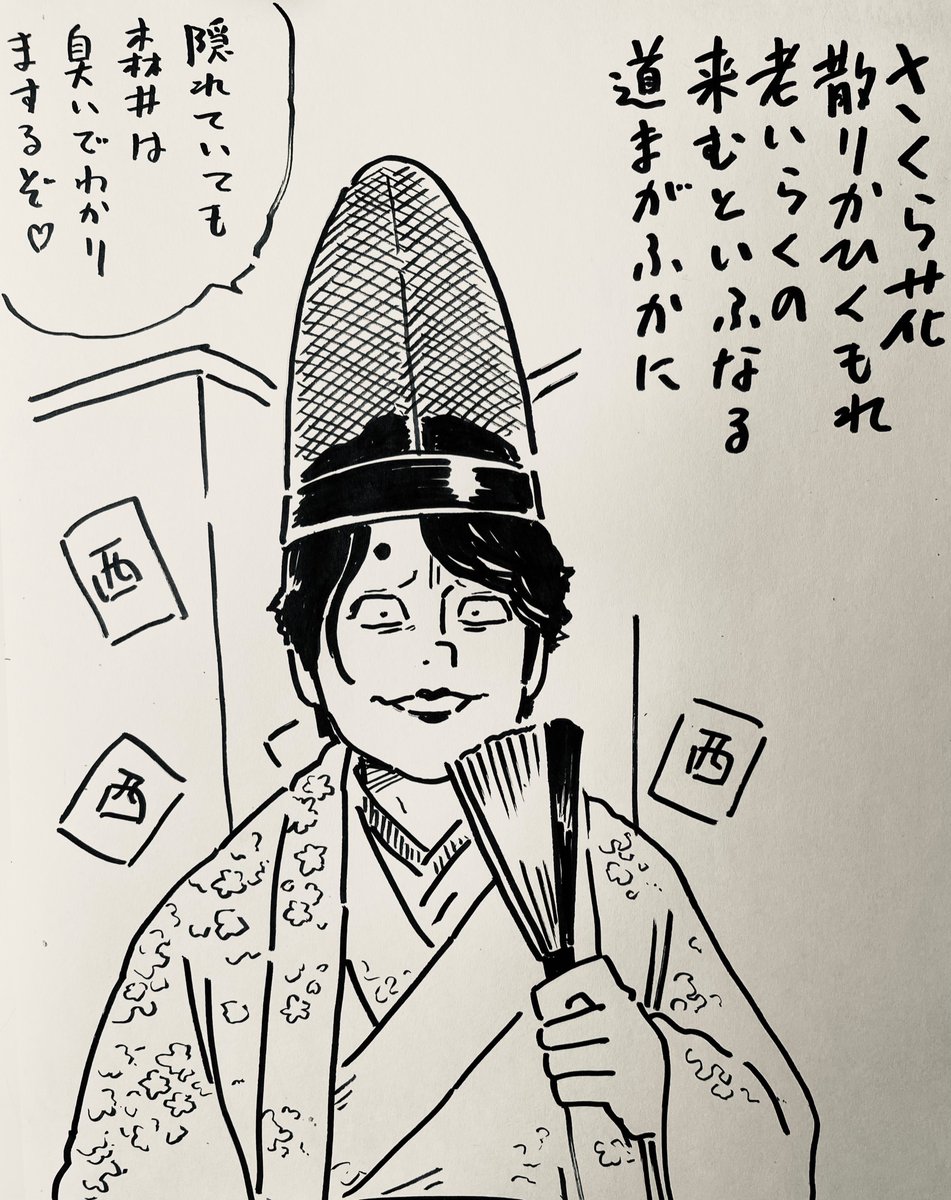 さくら花
散りかひくもれ
老いらくの
来むといふなる
道まがふかに
隠れていても
森井は
臭いでわかり
まするぞ♡
西
西
西